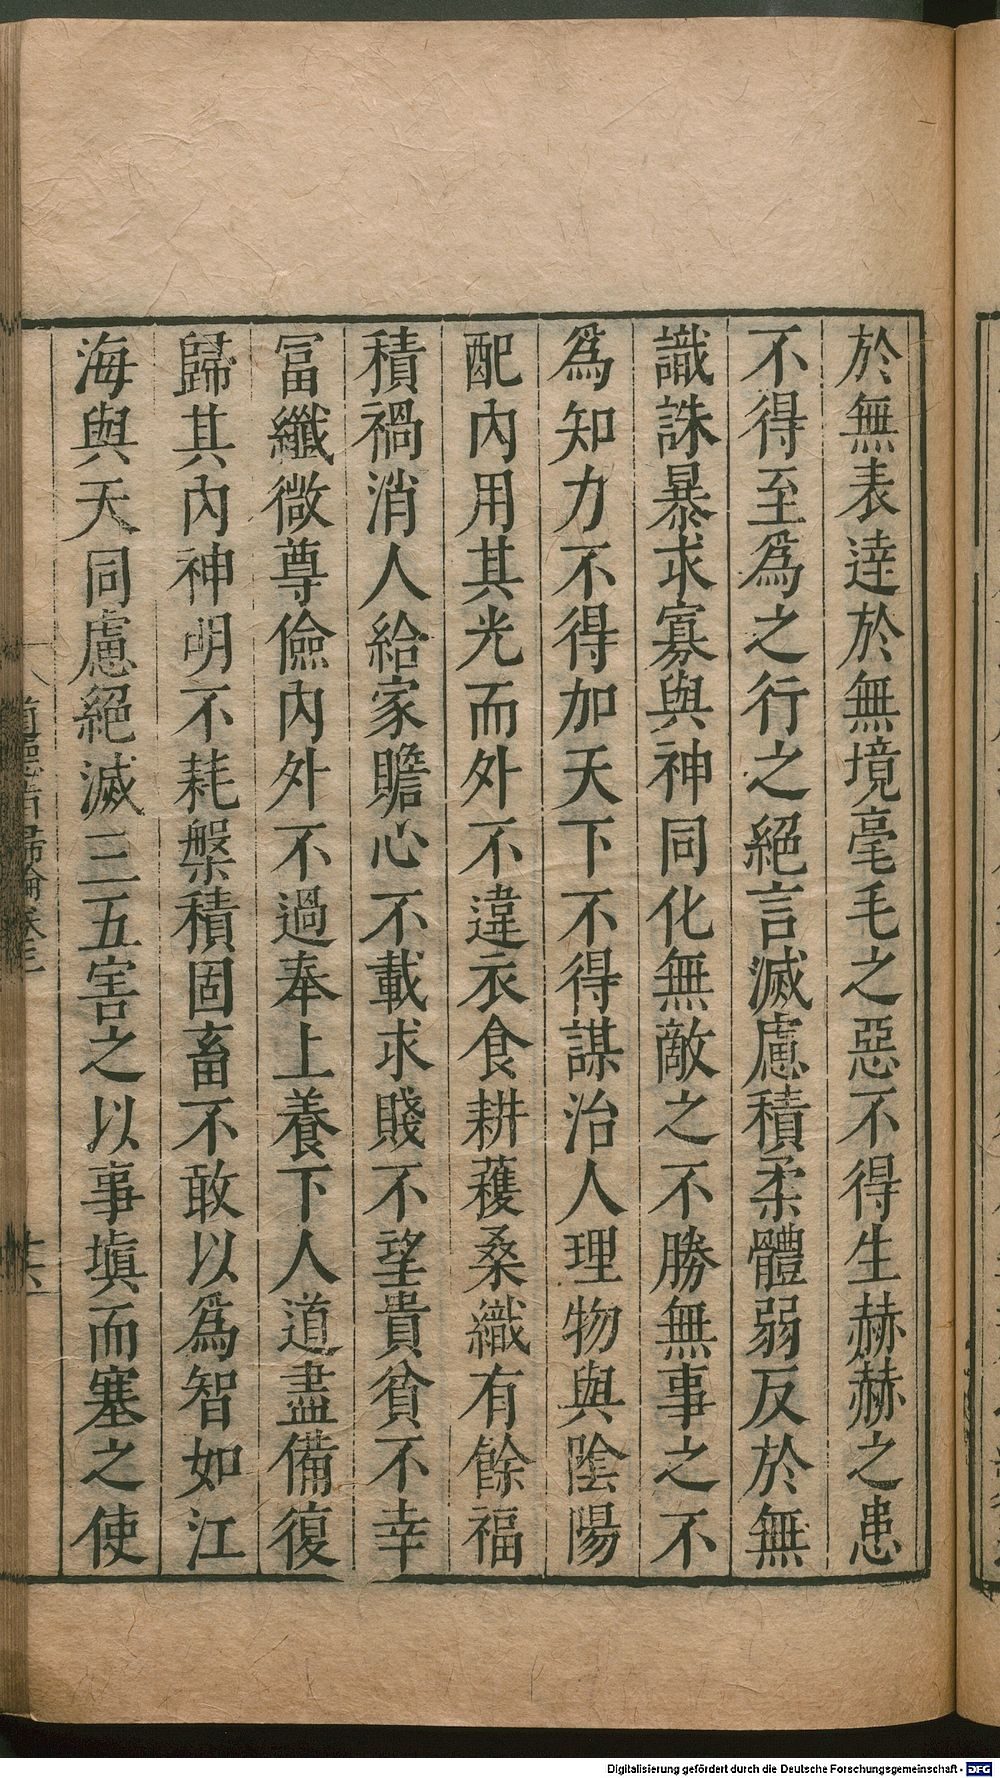 於無表達於無境毫毛之惡不得生赫赫之患
不得至爲之行之絕言滅慮積柔體弱反於無
識誅暴求寡與神同化無敵之不勝無事之不
爲知力不得加天下不得謀治人理物與陰陽
配內用其光而外不違衣食耕穫桑織有餘福
積禍消人給家贍心不載求賤不望貴貧不幸
冨纖微尊儉內外不過奉上養下人道盡備復
歸其內神明不耗槃積固畜不敢以爲智如江
海與天同慮絕滅三五害之以事塡而塞之使
道德指歸論卷三
十六
Digitalisierung gefördert durch die Deutsche Forschungsgemeinschaft - DFG